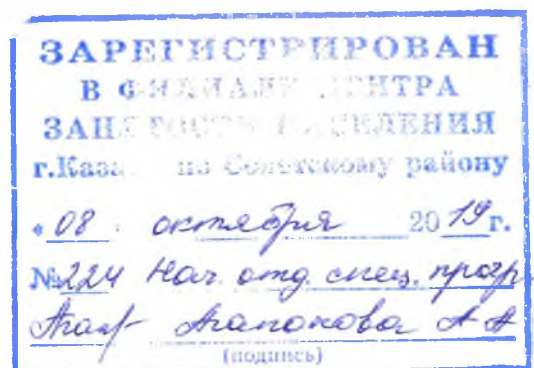 ЗАРЕГИСТРИРОВАН
В ФИЛИАЛЕ ЦЕНТРА
ЗАНЯТОСТИ НАСЕЛЕНИЯ
г.Казани по Советскому району
«08» октября 2019г.
№224 Нач. отд. спец. прогр
Агапонова А А
(подпись)